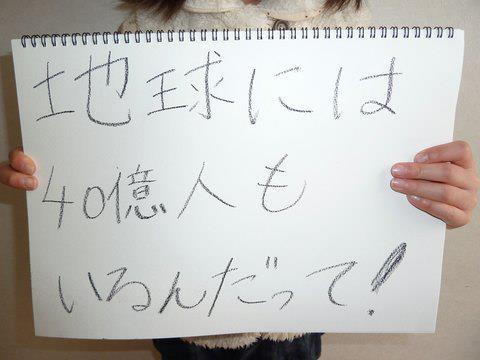 地球には
40億人も
いるんだって!